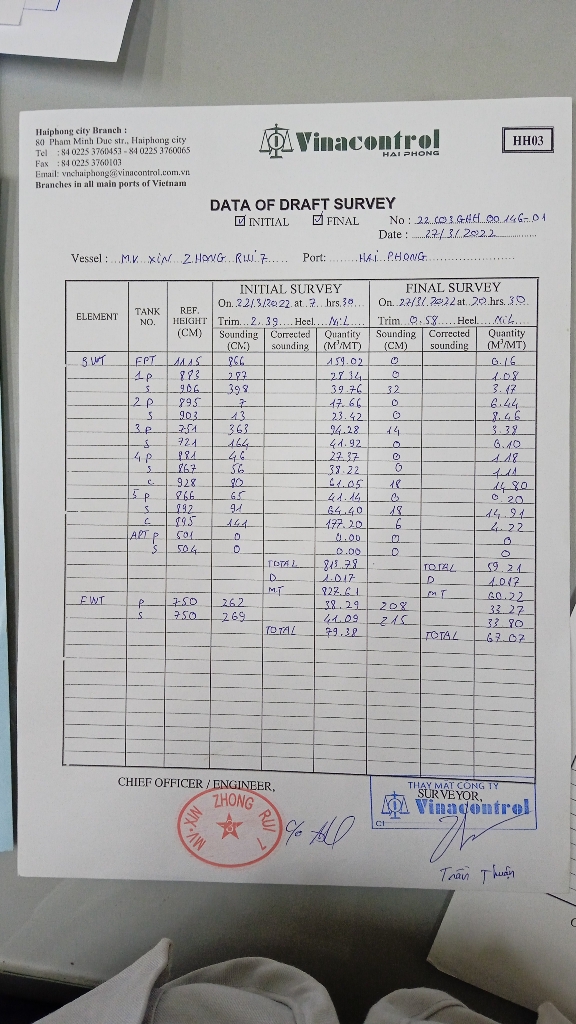 Haiphong city Branch :
80 Pham Minh Duc str., Haiphong city
Tel : 84 0225 3760453 - 84 0225 3760065
Fax : 84 0225 3760103
Email: vnchaiphong@vinacontrol.com.vn
Branches in all main ports of Vietnam
Vinacontrol
HAI PHONG
HH03
DATA OF DRAFT SURVEY
INITIAL FINAL
No : 22 G03 GHH 00146-01
Date : 27/3/2022
Vessel : M.V. XIN ZHONG RUI 7 Port: HAI PHONG
ELEMENT TANK NO. REF. HEIGHT (CM) INITIAL SURVEY FINAL SURVEY
On. 22/3/2022 at 7 hrs. 30 On. 27/3/2022 at 20 hrs. 30
Trim 2.39 Heel NiL Trim 0.58 Heel NiL
Sounding (CM) Corrected sounding Quantity (M³/MT) Sounding (CM) Corrected sounding Quantity (M³/MT)
SWT FPT 1115 866 159.02 0 0.16
1 P 883 287 28.34 0 1.08
S 906 398 39.76 32 3.17
2 P 895 7 17.66 0 6.44
S 903 13 23.42 0 8.46
3 P 751 363 94.28 14 3.38
S 721 164 41.92 0 0.10
4 P 881 46 27.37 0 1.18
S 867 56 38.22 0 1.11
C 928 80 61.05 18 14.80
5 P 866 65 41.14 0 0.20
S 892 91 64.40 18 14.91
C 895 141 177.20 6 4.22
APT P 501 0 0.00 0 0
S 504 0 0.00 0 0
TOTAL 813.78 TOTAL 59.21
D 1.017 D 1.017
MT 827.61 MT 60.22
FWT P 750 262 38.29 208 33.27
S 750 269 41.09 215 33.80
TOTAL 79.38 TOTAL 67.07
CHIEF OFFICER / ENGINEER,
MV.XIN ZHONG RUI 7
C/O
THAY MẶT CÔNG TY
SURVEYOR,
Vinacontrol
C1
Trần Thuận